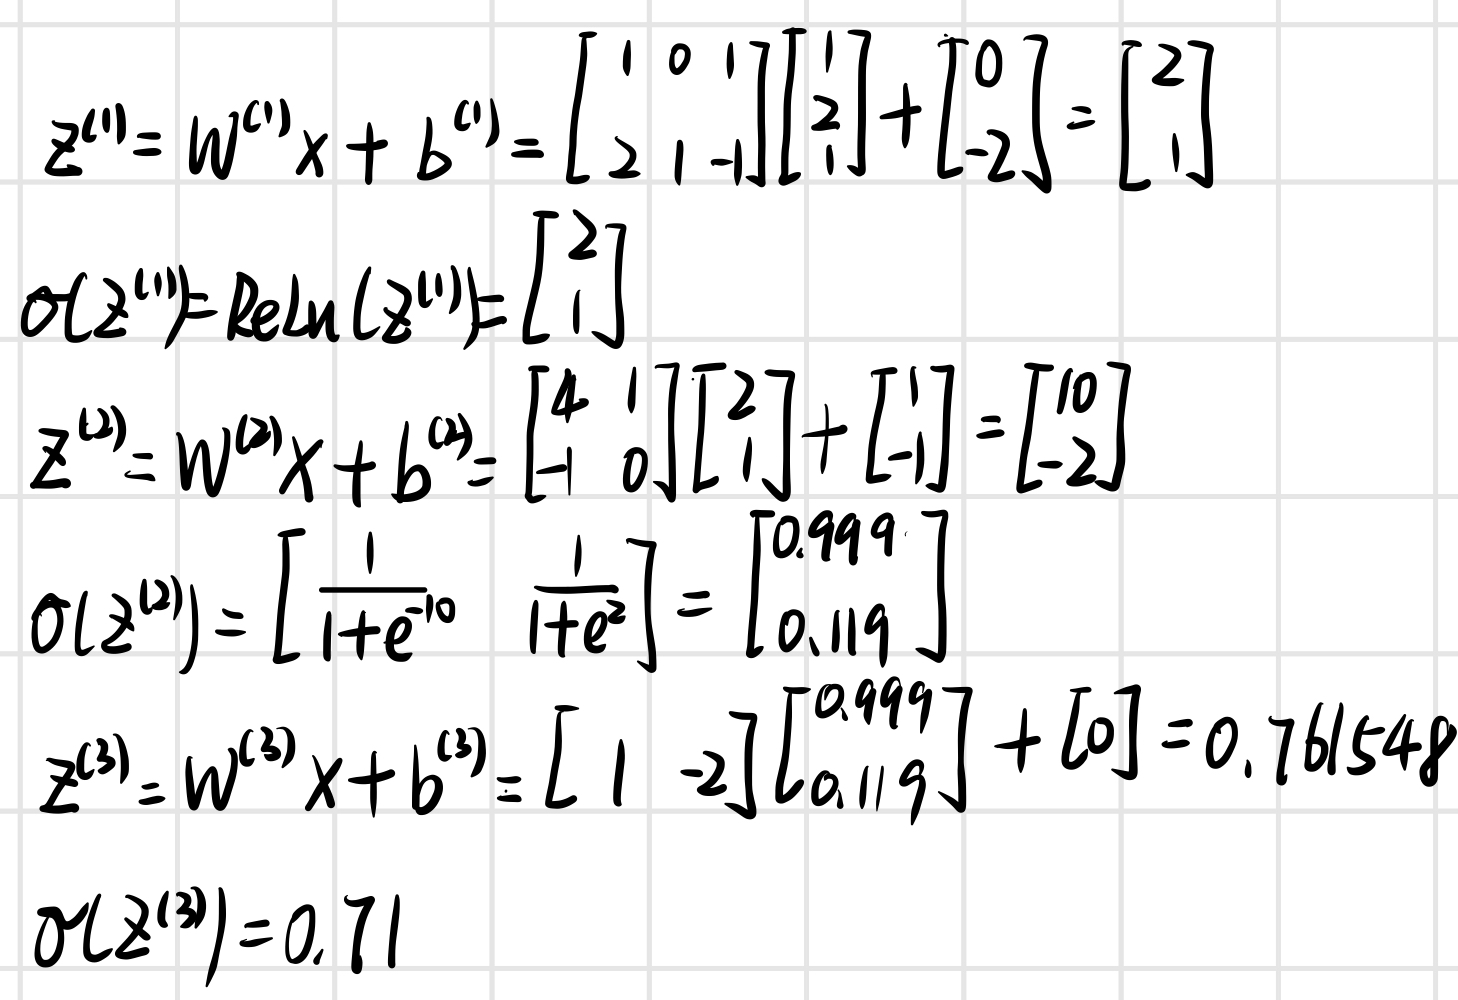 z⁽¹⁾ = W⁽¹⁾x + b⁽¹⁾ = [1 0 1; 2 1 -1][1; 2; 1] + [0; -2] = [2; 1]
σ(z⁽¹⁾) = ReLu(z⁽¹⁾) = [2; 1]
z⁽²⁾ = W⁽²⁾x + b⁽²⁾ = [4 1; -1 0][2; 1] + [1; -1] = [10; -2]
σ(z⁽²⁾) = [1/(1+e⁻¹⁰) 1/(1+e²)] = [0.999; 0.119]
z⁽³⁾ = W⁽³⁾x + b⁽³⁾ = [1 -2][0.999; 0.119] + [0] = 0.761548
σ(z⁽³⁾) = 0.71